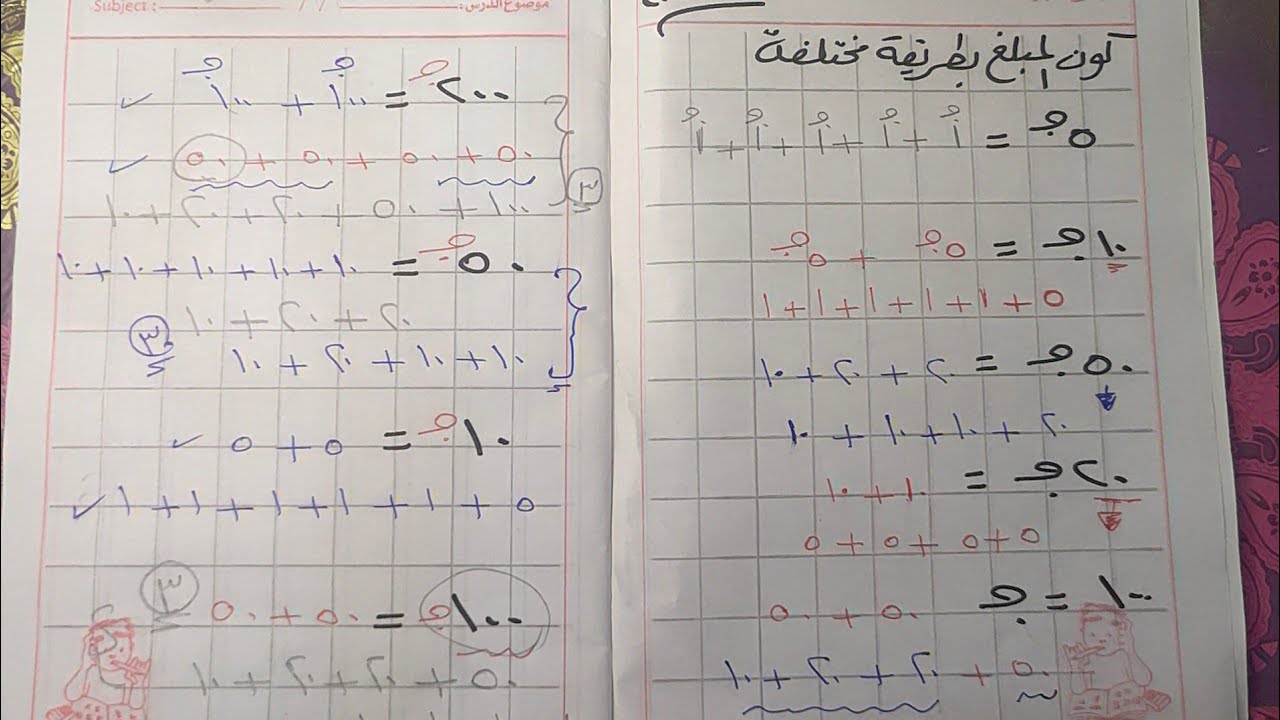 كون المبلغ بطريقة مختلفة
٥ج = ١ج + ١ج + ١ج + ١ج + ١ج
١٠ج = ٥ج + ٥ج
٥ + ١ + ١ + ١ + ١ + ١
٥٠ج = ٢٠ + ٢٠ + ١٠
٢٠ + ١٠ + ١٠ + ١٠
٢٠ج = ١٠ + ١٠
٥ + ٥ + ٥ + ٥
١٠٠ = ج ٥٠ + ٥٠
٥٠ + ٢٠ + ٢٠ + ١٠
Subject : / / موضوع الدرس:
٢٠٠ج = ١٠٠ج + ١٠٠ج ✓
٥٠ + ٥٠ + ٥٠ + ٥٠ ✓
١٠٠ + ٥٠ + ٢٠ + ٢٠ + ١٠
٥٠ج = ١٠ + ١٠ + ١٠ + ١٠ + ١٠
٢٠ + ٢٠ + ١٠
١٠ + ١٠ + ٢٠ + ١٠
١٠ج = ٥ + ٥ ✓
٥ + ١ + ١ + ١ + ١ + ١ ✓
١٠٠ج = ٥٠ + ٥٠
٥٠ + ٢٠ + ٢٠ + ١٠